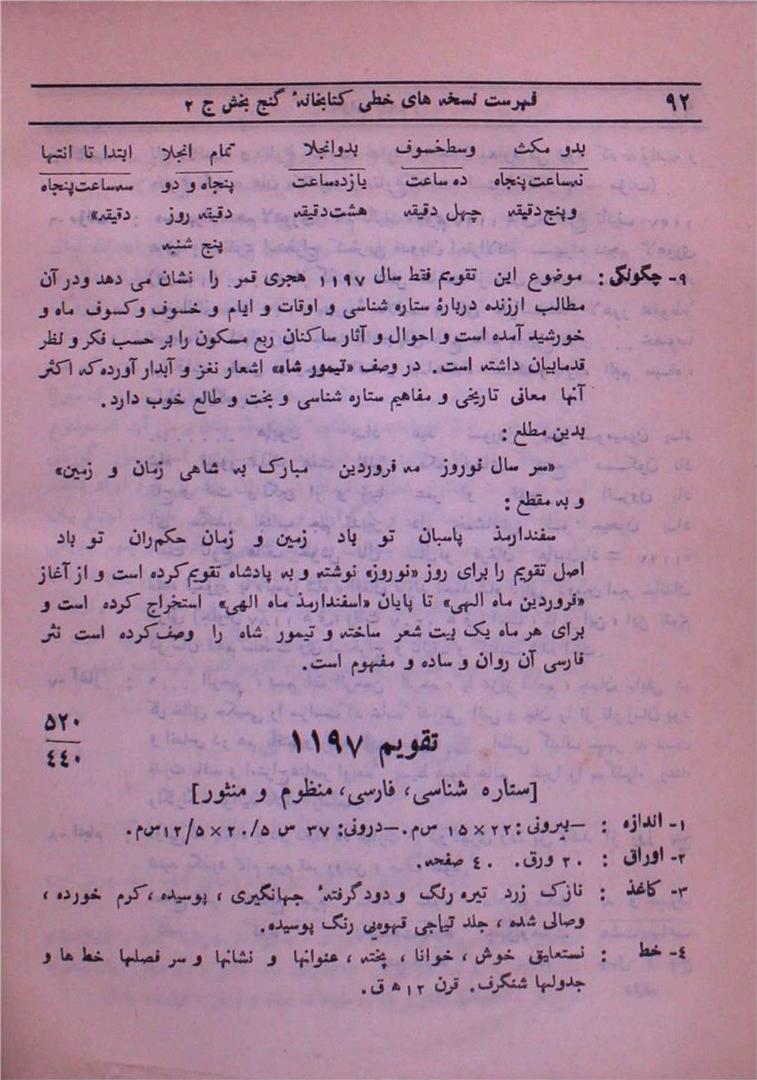 ۹۲ فهرست نسخه های خطی کتابخانهٔ گنج بخش ج ۲
بدو مکث وسط خسوف بدو انجلا تمام انجلا ابتدا تا انتها
نه ساعت پنجاه ده ساعت یازده ساعت پنجاه و دو سه ساعت پنجاه
و پنج دقیقه چهل دقیقه هشت دقیقه دقیقه روز دقیقه»
پنج شنبه
۹- چگونگی : موضوع این تقویم فقط سال ۱۱۹۷ هجری قمر را نشان می دهد و در آن
مطالب ارزنده دربارهٔ ستاره شناسی و اوقات و ایام و خسوف و کسوف ماه و
خورشید آمده است و احوال و آثار ساکنان ربع مسکون را بر حسب فکر و نظر
قدمابیان داشته است. در وصف «تیمور شاه» اشعار نغز و آبدار آورده که اکثر
آنها معانی تاریخی و مفاهیم ستاره شناسی و بخت و طالع خوب دارد.
بدین مطلع :
«سر سال نوروز مه فروردین مبارک به شاهی زمان و زمین»
و به مقطع :
سفندارمذ پاسبان تو باد زمین و زمان حکمران تو باد
اصل تقویم را برای روز «نوروز» نوشته و به پادشاه تقویم کرده است و از آغاز
«فروردین ماه الهی» تا پایان «اسفندارمذ ماه الهی» استخراج کرده است و
برای هر ماه یک بیت شعر ساخته و تیمور شاه را وصف کرده است نثر
فارسی آن روان و ساده و مفهوم است.
۵۲۰
۴۴۰
تقویم ۱۱۹۷
[ستاره شناسی، فارسی، منظوم و منثور]
۱- اندازه : —بیرونی: ۲۲×۱۵ س م. —درونی: ۳۷ س ۲۰/۵×۱۲/۵ س م.
۲- اوراق : ۲۰ ورق. ۴۰ صفحه.
۳- کاغذ : نازک زرد تیره رنگ و دود گرفتهٔ جهانگیری، پوسیده، کرم خورده،
وصالی شده، جلد تیاجی قهوه‌یی رنگ پوسیده.
۴- خط : نستعلیق خوش، خوانا، پخته، عنوانها و نشانها و سر فصلها خط ها و
جدولها شنگرف. قرن ۱۲ ه ق.